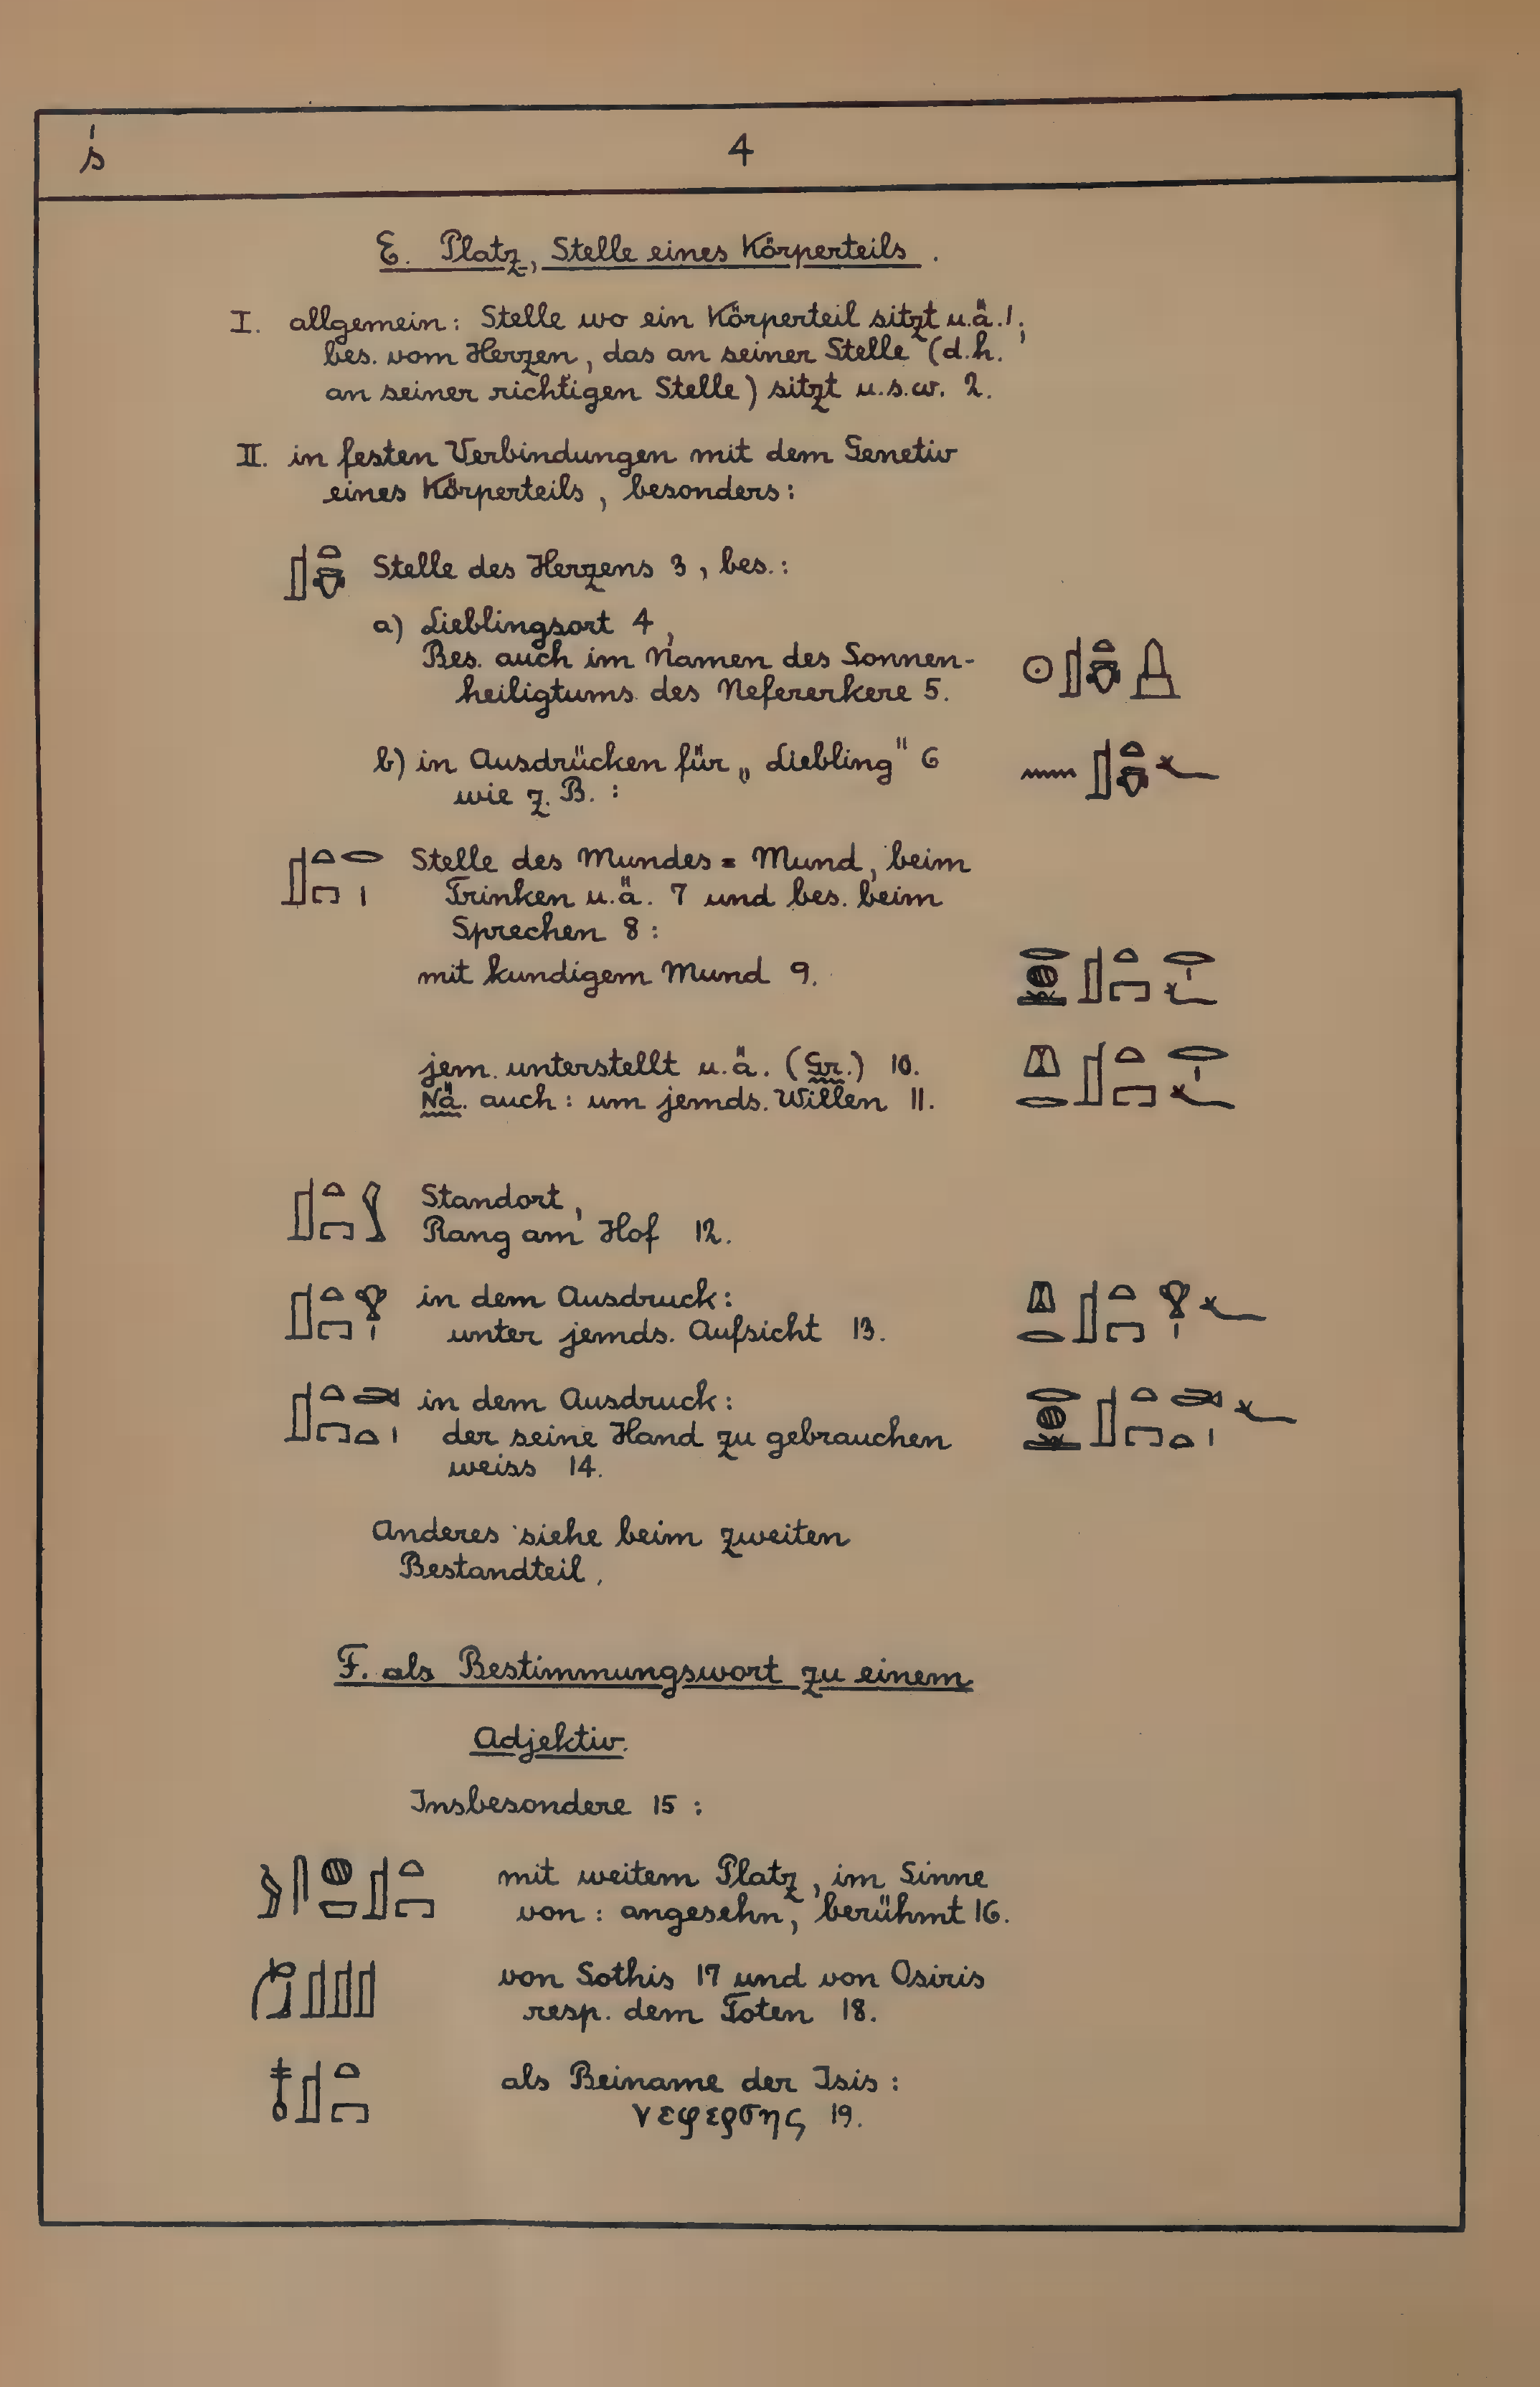 ś 4
E. Platz, Stelle eines Körperteils.
I. allgemein: Stelle wo ein Körperteil sitzt u.ä. 1;
bes. vom Herzen, das an seiner Stelle (d.h.
an seiner richtigen Stelle) sitzt u.s.w. 2.
II. in festen Verbindungen mit dem Genetiv
eines Körperteils, besonders:
𓊨𓏏𓄣 Stelle des Herzens 3, bes.:
a) Lieblingsort 4,
Bes. auch im Namen des Sonnen-
heiligtums des Nefererkere 5. 𓇳𓊨𓏏𓄣𓉺
b) in Ausdrücken für „Liebling" 6 𓈖𓊨𓏏𓄣𓆑
wie z. B.:
𓊨𓏏𓉐𓂋𓏤 Stelle des Mundes = Mund, beim
Trinken u.ä. 7 und bes. beim
Sprechen 8:
mit kundigem Mund 9. 𓂋𓐍𓏛𓊨𓏏𓉐𓂋𓏤𓆑
jem. unterstellt u.ä. (Gr.) 10. 𓎛𓂋𓊨𓏏𓉐𓂋𓏤𓆑
Nä. auch: um jemds. Willen 11.
𓊨𓏏𓉐𓂾 Standort,
Rang am Hof 12.
𓊨𓏏𓉐𓁷𓏤 in dem Ausdruck:
unter jemds. Aufsicht 13.
𓊨𓏏𓉐𓂧𓏏𓏤 in dem Ausdruck:
der seine Hand zu gebrauchen
weiss 14.
Anderes siehe beim zweiten
Bestandteil.
F. als Bestimmungswort zu einem
Adjektiv.
Insbesondere 15:
mit weitem Platz, im Sinne
von: angesehn, berühmt 16.
von Sothis 17 und von Osiris
resp. dem Toten 18.
𓄤𓊨𓏏𓉐 als Beiname der Isis:
νεφερσης 19.